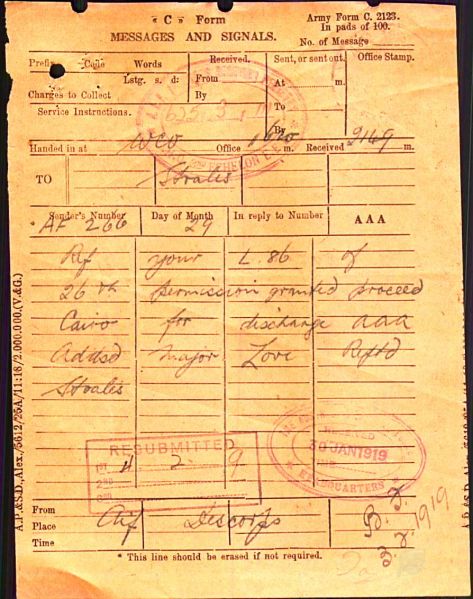 "C" Form
Army Form C. 2123.
In pads of 100.
MESSAGES AND SIGNALS.
No. of Message
Prefix Code Words Received. Sent, or sent out. Office Stamp.
Lstg. s. d: From At m.
Charges to Collect By To
Service Instructions. By
Handed in at Office Received 2149 m.
TO Stralis
*Sender's Number Day of Month In reply to Number AAA
AF 266 29
Ref your L.86 of
26th permission granted proceed
Cairo for discharge aaa
Addsd Major Love Reptd
Stralis
RESUBMITTED
4 2 9
RECEIVED
30 JAN 1919
HEADQUARTERS
From Aif Descorps
Place
Time
* This line should be erased if not required.
A.P.&S.D., Alex./5612/25A/11:18/2,000,000.(V.&G.)